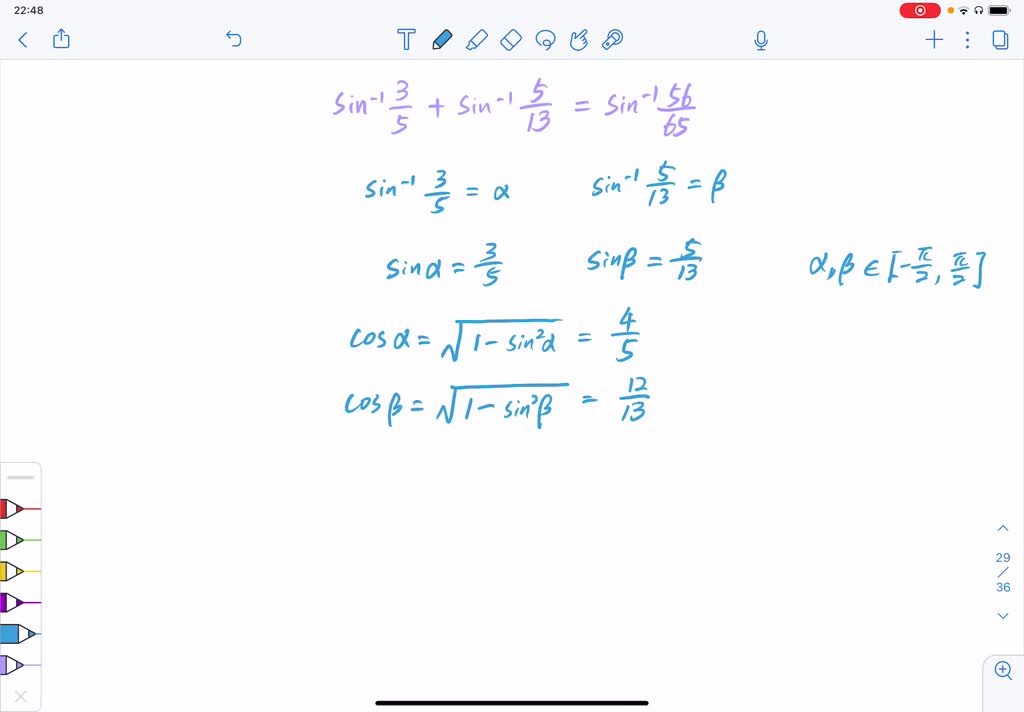 22:48
sin⁻¹ 3/5 + sin⁻¹ 5/13 = sin⁻¹ 56/65
sin⁻¹ 3/5 = α    sin⁻¹ 5/13 = β
sinα = 3/5    sinβ = 5/13    α,β ∈ [-π/2, π/2]
cosα = √(1 - sin²α) = 4/5
cosβ = √(1 - sin²β) = 12/13
29
/
36